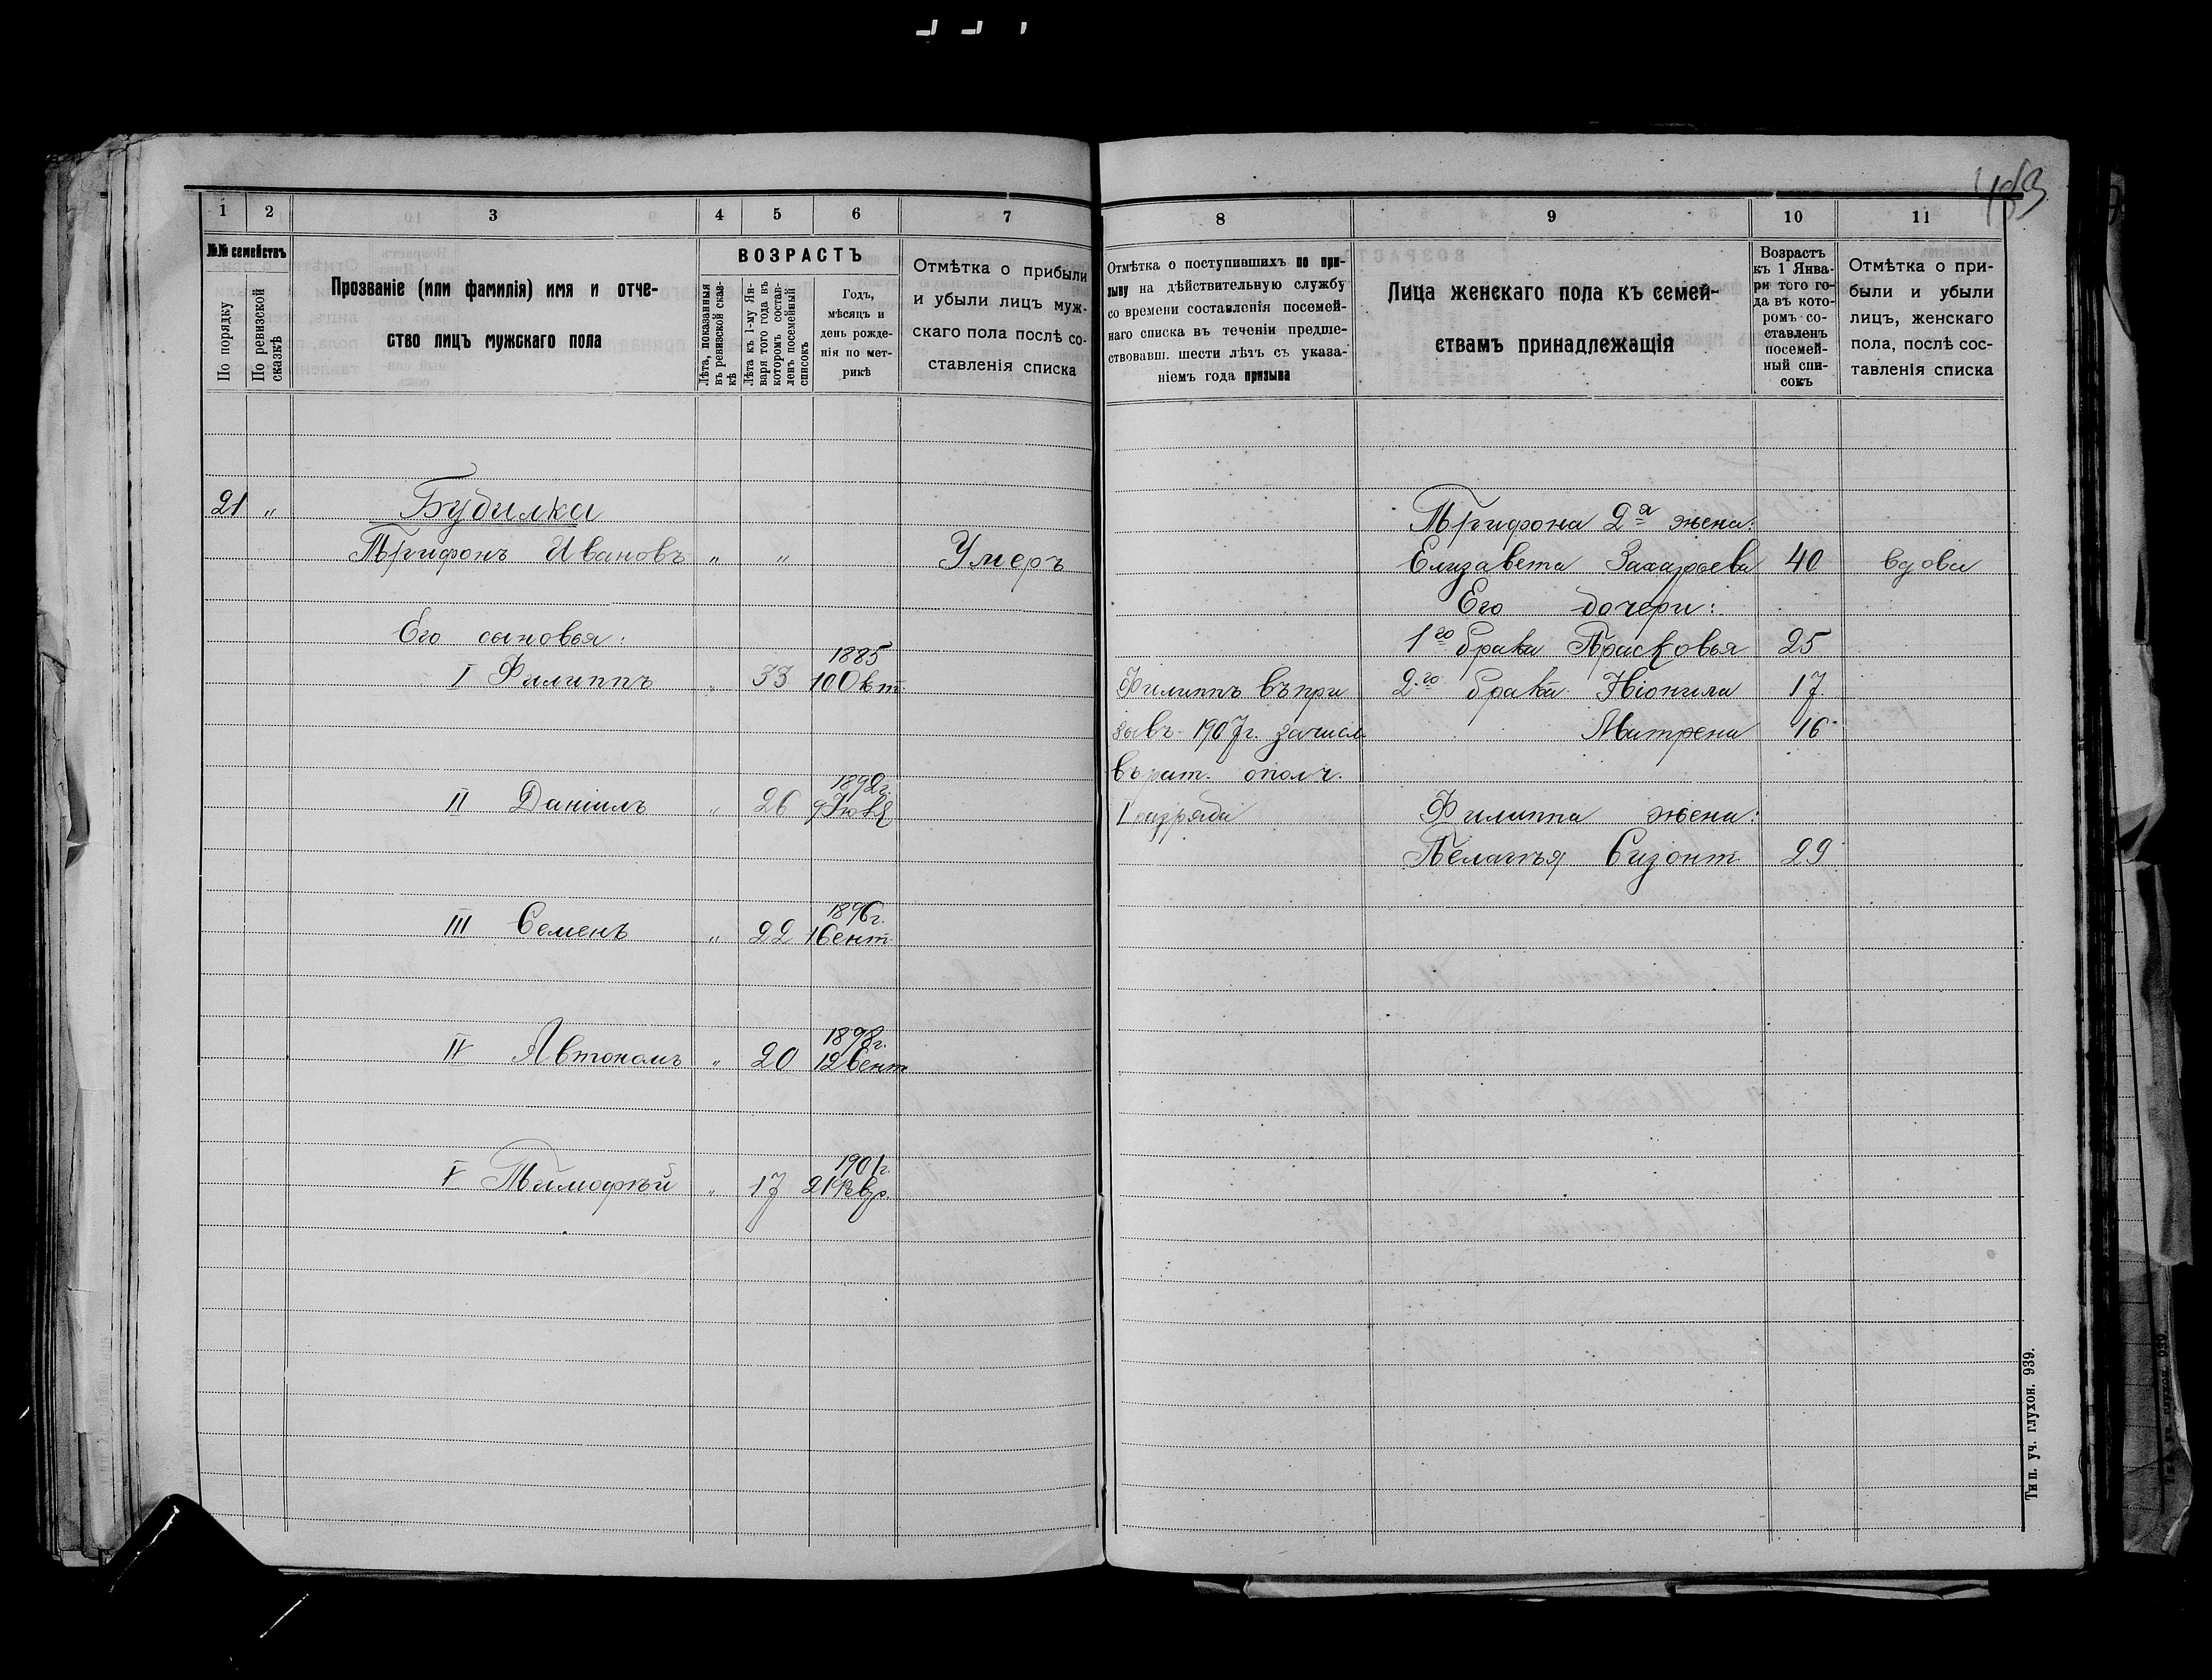 483
1 2 3 4 5 6 7
№№ семействъ
По порядку
По ревизской сказкѣ
Прозваніе (или фамилія) имя и отче-
ство лицъ мужскаго пола
ВОЗРАСТЪ
Лѣта, показанныя
въ ревизской сказ-
кѣ
Лѣта къ 1-му Ян-
варя того года въ
которомъ состав-
ленъ посемейный
списокъ
Годъ,
мѣсяцъ и
день рожде-
нія по мет-
рикѣ
Отмѣтка о прибыли
и убыли лицъ муж-
скаго пола послѣ со-
ставленія списка
21 " Будилка
Трифонъ Ивановъ " " Умеръ
Его сыновья:
1885
I Филиппъ " 33 10 Окт.
1892г.
II Даніилъ " 26
1896г.
III Семенъ " 22 1 Сент.
1898г.
IV Автономъ " 20 12 Сент.
1901г.
V Тимофѣй " 17 21
8 9 10 11
Отмѣтка о поступившихъ по при-
зыву на дѣйствительную службу
со времени составленія посемей-
наго списка въ теченіи предше-
ствовавш. шести лѣтъ съ указа-
ніемъ года призыва
Лица женскаго пола къ семей-
ствамъ принадлежащія
Возрастъ
къ 1 Янва-
ри того го-
да въ кото-
ромъ со-
ставленъ
посемей-
ный спи-
сокъ
Отмѣтка о при-
были и убыли
лицъ, женскаго
пола, послѣ сос-
тавленія списка
Трифона 2я жена:
Елизавета Захарьева 40 вдова
Его дочери:
1го брака Прасковья 25
Филиппъ въ при 2-го брака Ніонила 17
зывъ 1907г. зачисл. Матрена 16
въ рат. ополч.
I разряда Филиппа жена:
Пелагѣя Сизонт. 29
Тип. уч. глухон. 939.